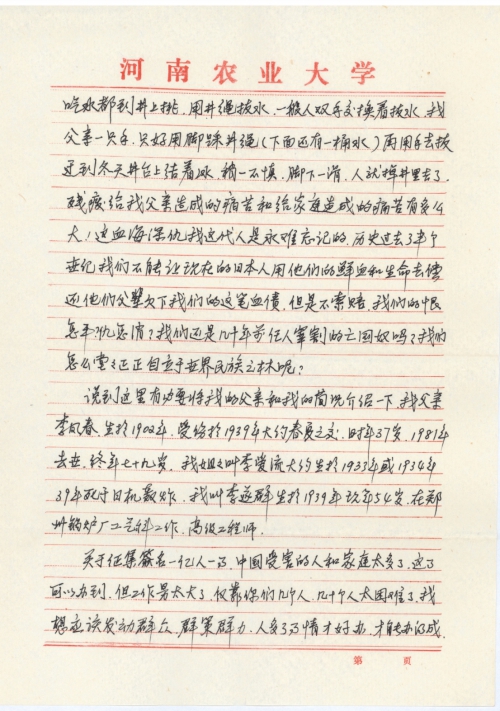 河南农业大学
吃水都到井上挑,用井绳拔水,一般人双手交换着拔水,我
父亲一只手,只好用脚踩井绳(下面还有一桶水)再用手去拔
遇到冬天井台上结着冰,稍一不慎,脚下一滑,人就掉井里去了,
残废给我父亲造成的痛苦和给家庭造成的痛苦有多么
大!这血海深仇我这代人是永难忘记的,历史过去了半个
世纪我们不能让现在的日本人用他们的鲜血和生命去偿
还他们父辈欠下我们的这笔血债,但是不索赔,我们的恨
怎平?仇怎消?我们还是几十年前任人宰割的亡国奴吗?我们
怎么堂々正正自立于世界民族之林呢?
说到这里有必要将我的父亲和我的简况介绍一下,我父亲
李凤春,生於1902年,受伤於1939年大约春夏之交,时年37岁,1981年
去世,终年七十九岁,我姐々叫李爱流大约生於1933年或1934年
39年死于日机轰炸,我叫李遂群生於1939年现年54岁,在郑
州锅炉厂工艺科工作,高级工程师.
关于征集签名一亿人一事,中国受害的人和家庭太多了,这事
可以办到,但工作量太大了,仅靠你们几个人,几十个人太困难了,我
想应该发动群众,群策群力,人多了事情才好办,才能办的成,
第 页